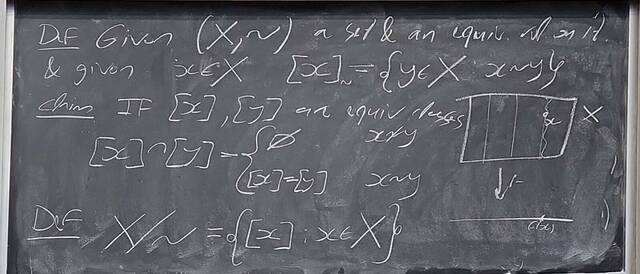 Def Given (X,~) a set & an equiv. rel on it.
& given x∈X [x]~ = {y∈X : x~y}
Claim If [x],[y] are equiv. classes
[x]∩[y] = { ∅ x≁y
[x]=[y] x~y
x X
Def X/~ = {[x] : x∈X}